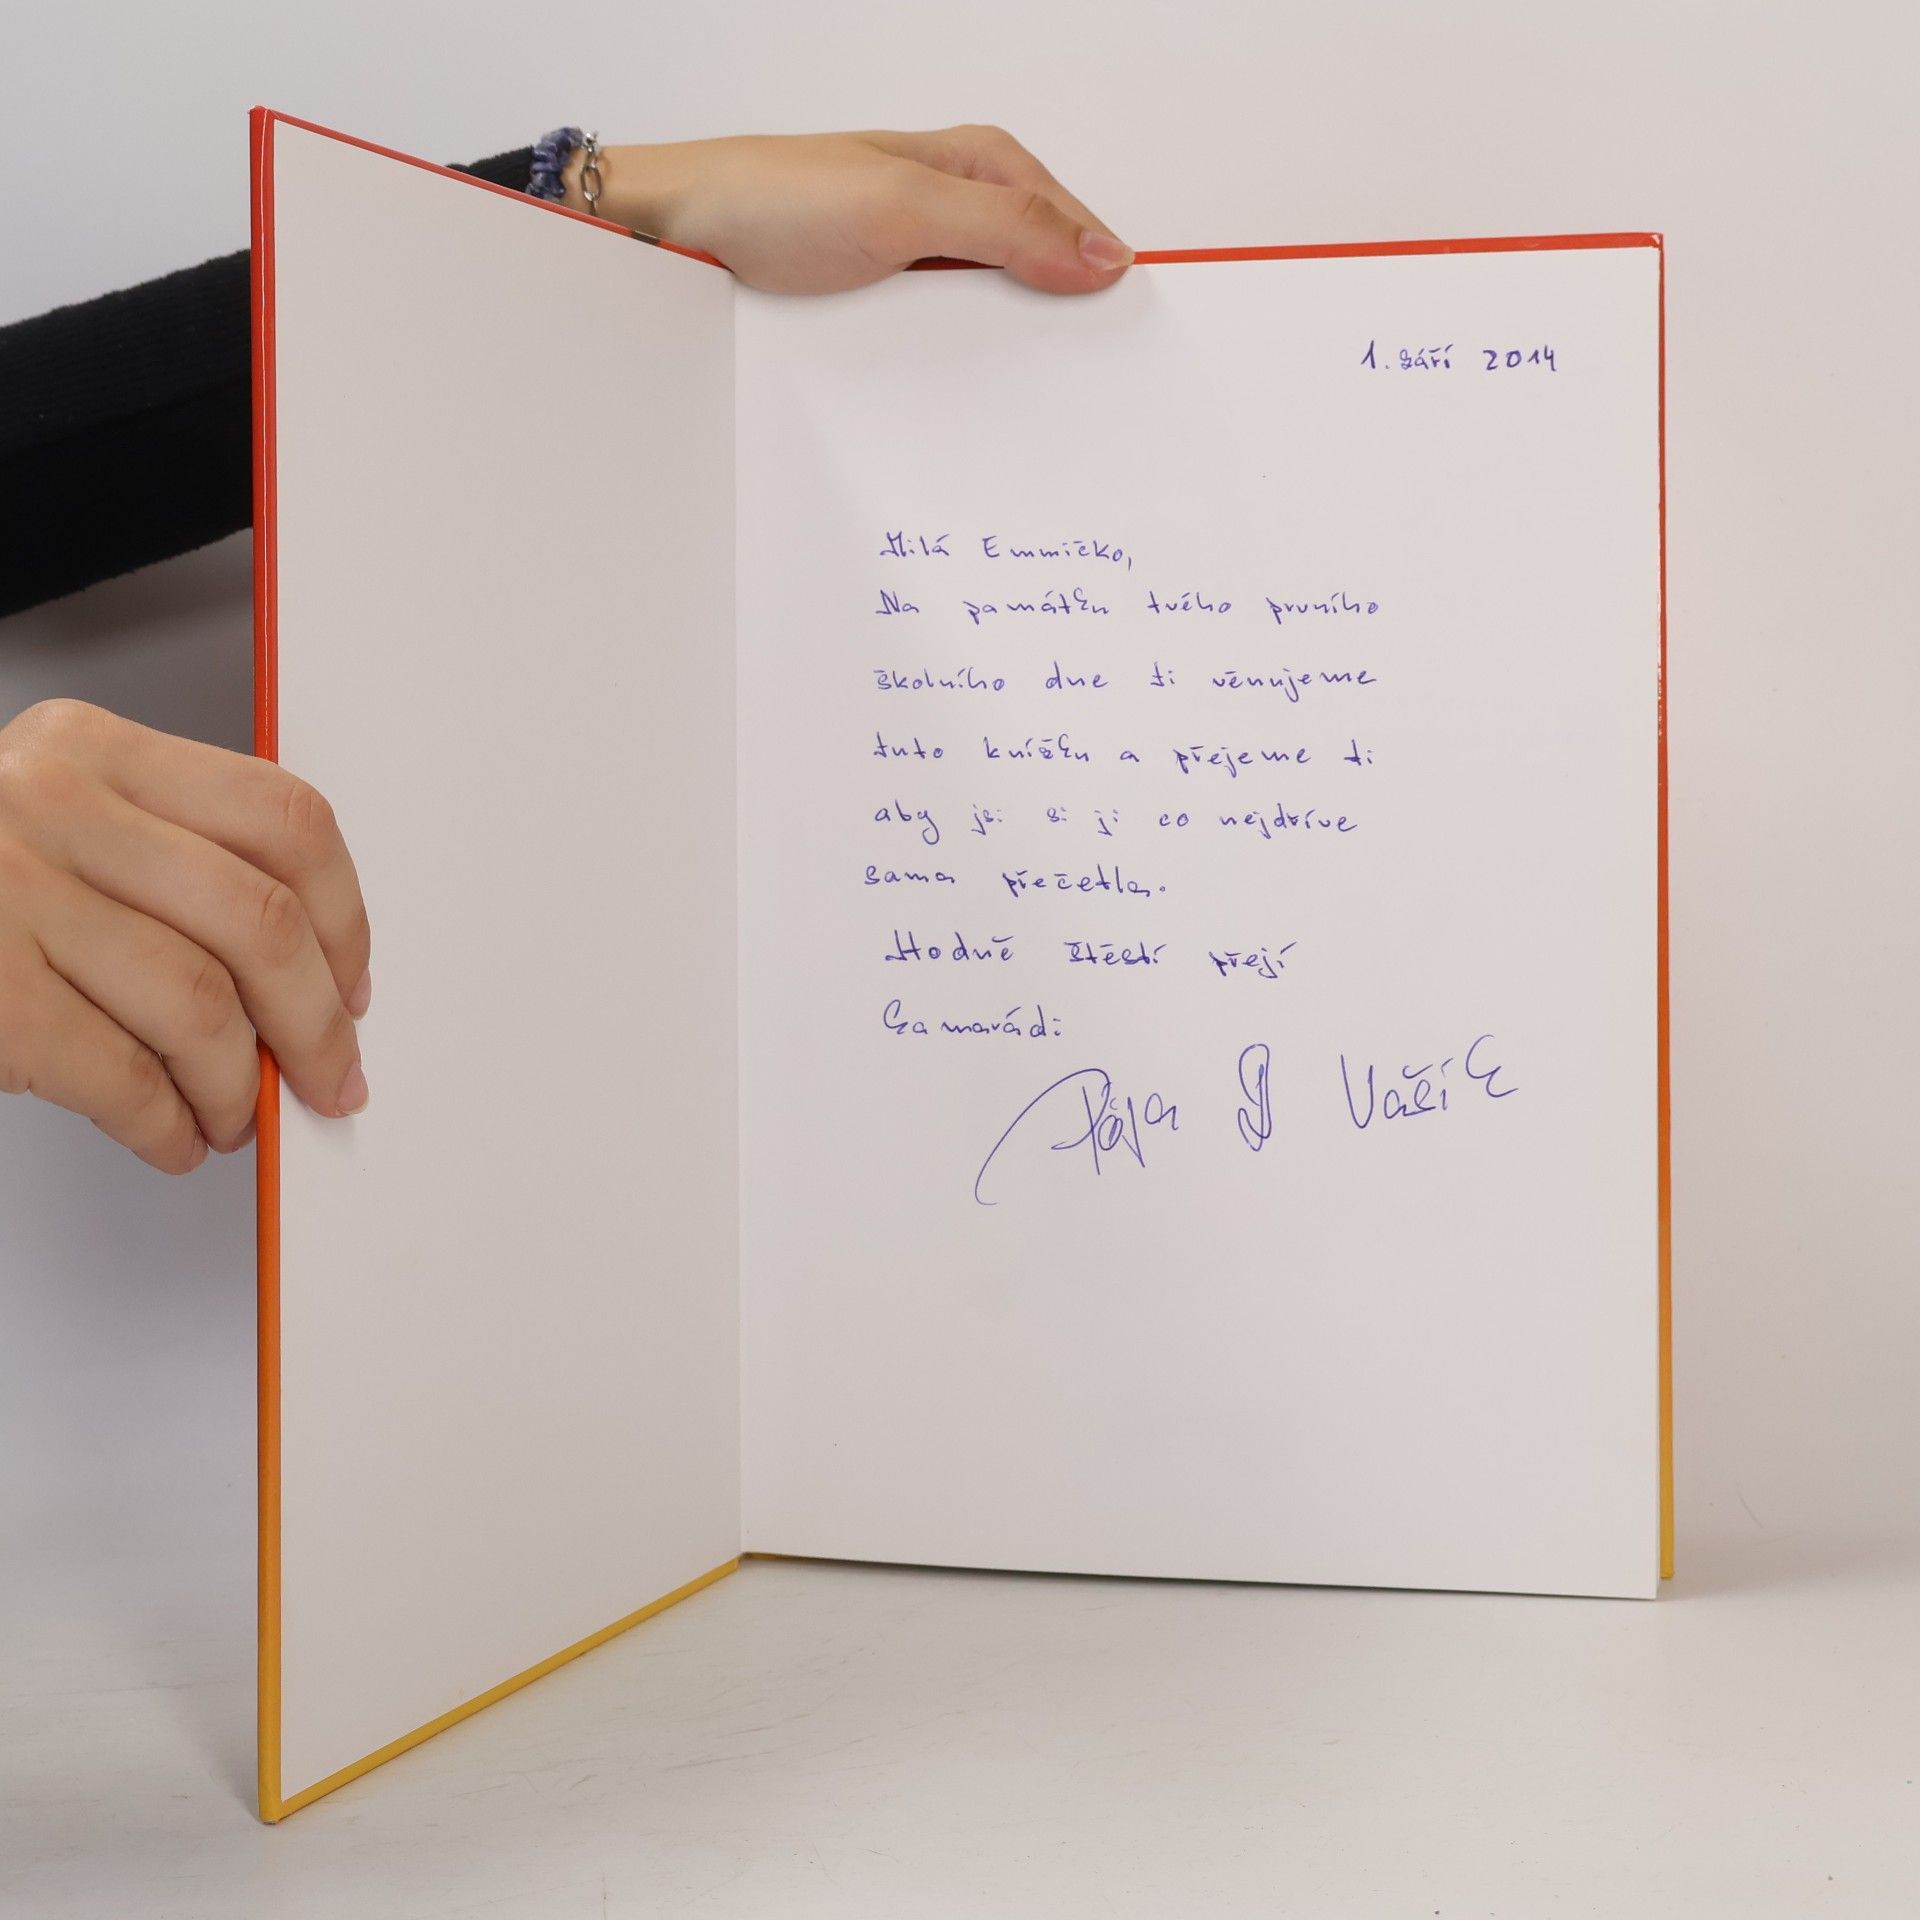 1. září 2014
Milá Emmičko,
Na památku tvého prvního
školního dne ti věnujeme
tuto knížku a přejeme ti
aby jsi si ji co nejdříve
sama přečetla.
Hodně štěstí přejí
kamarádi
Pája & Vašík